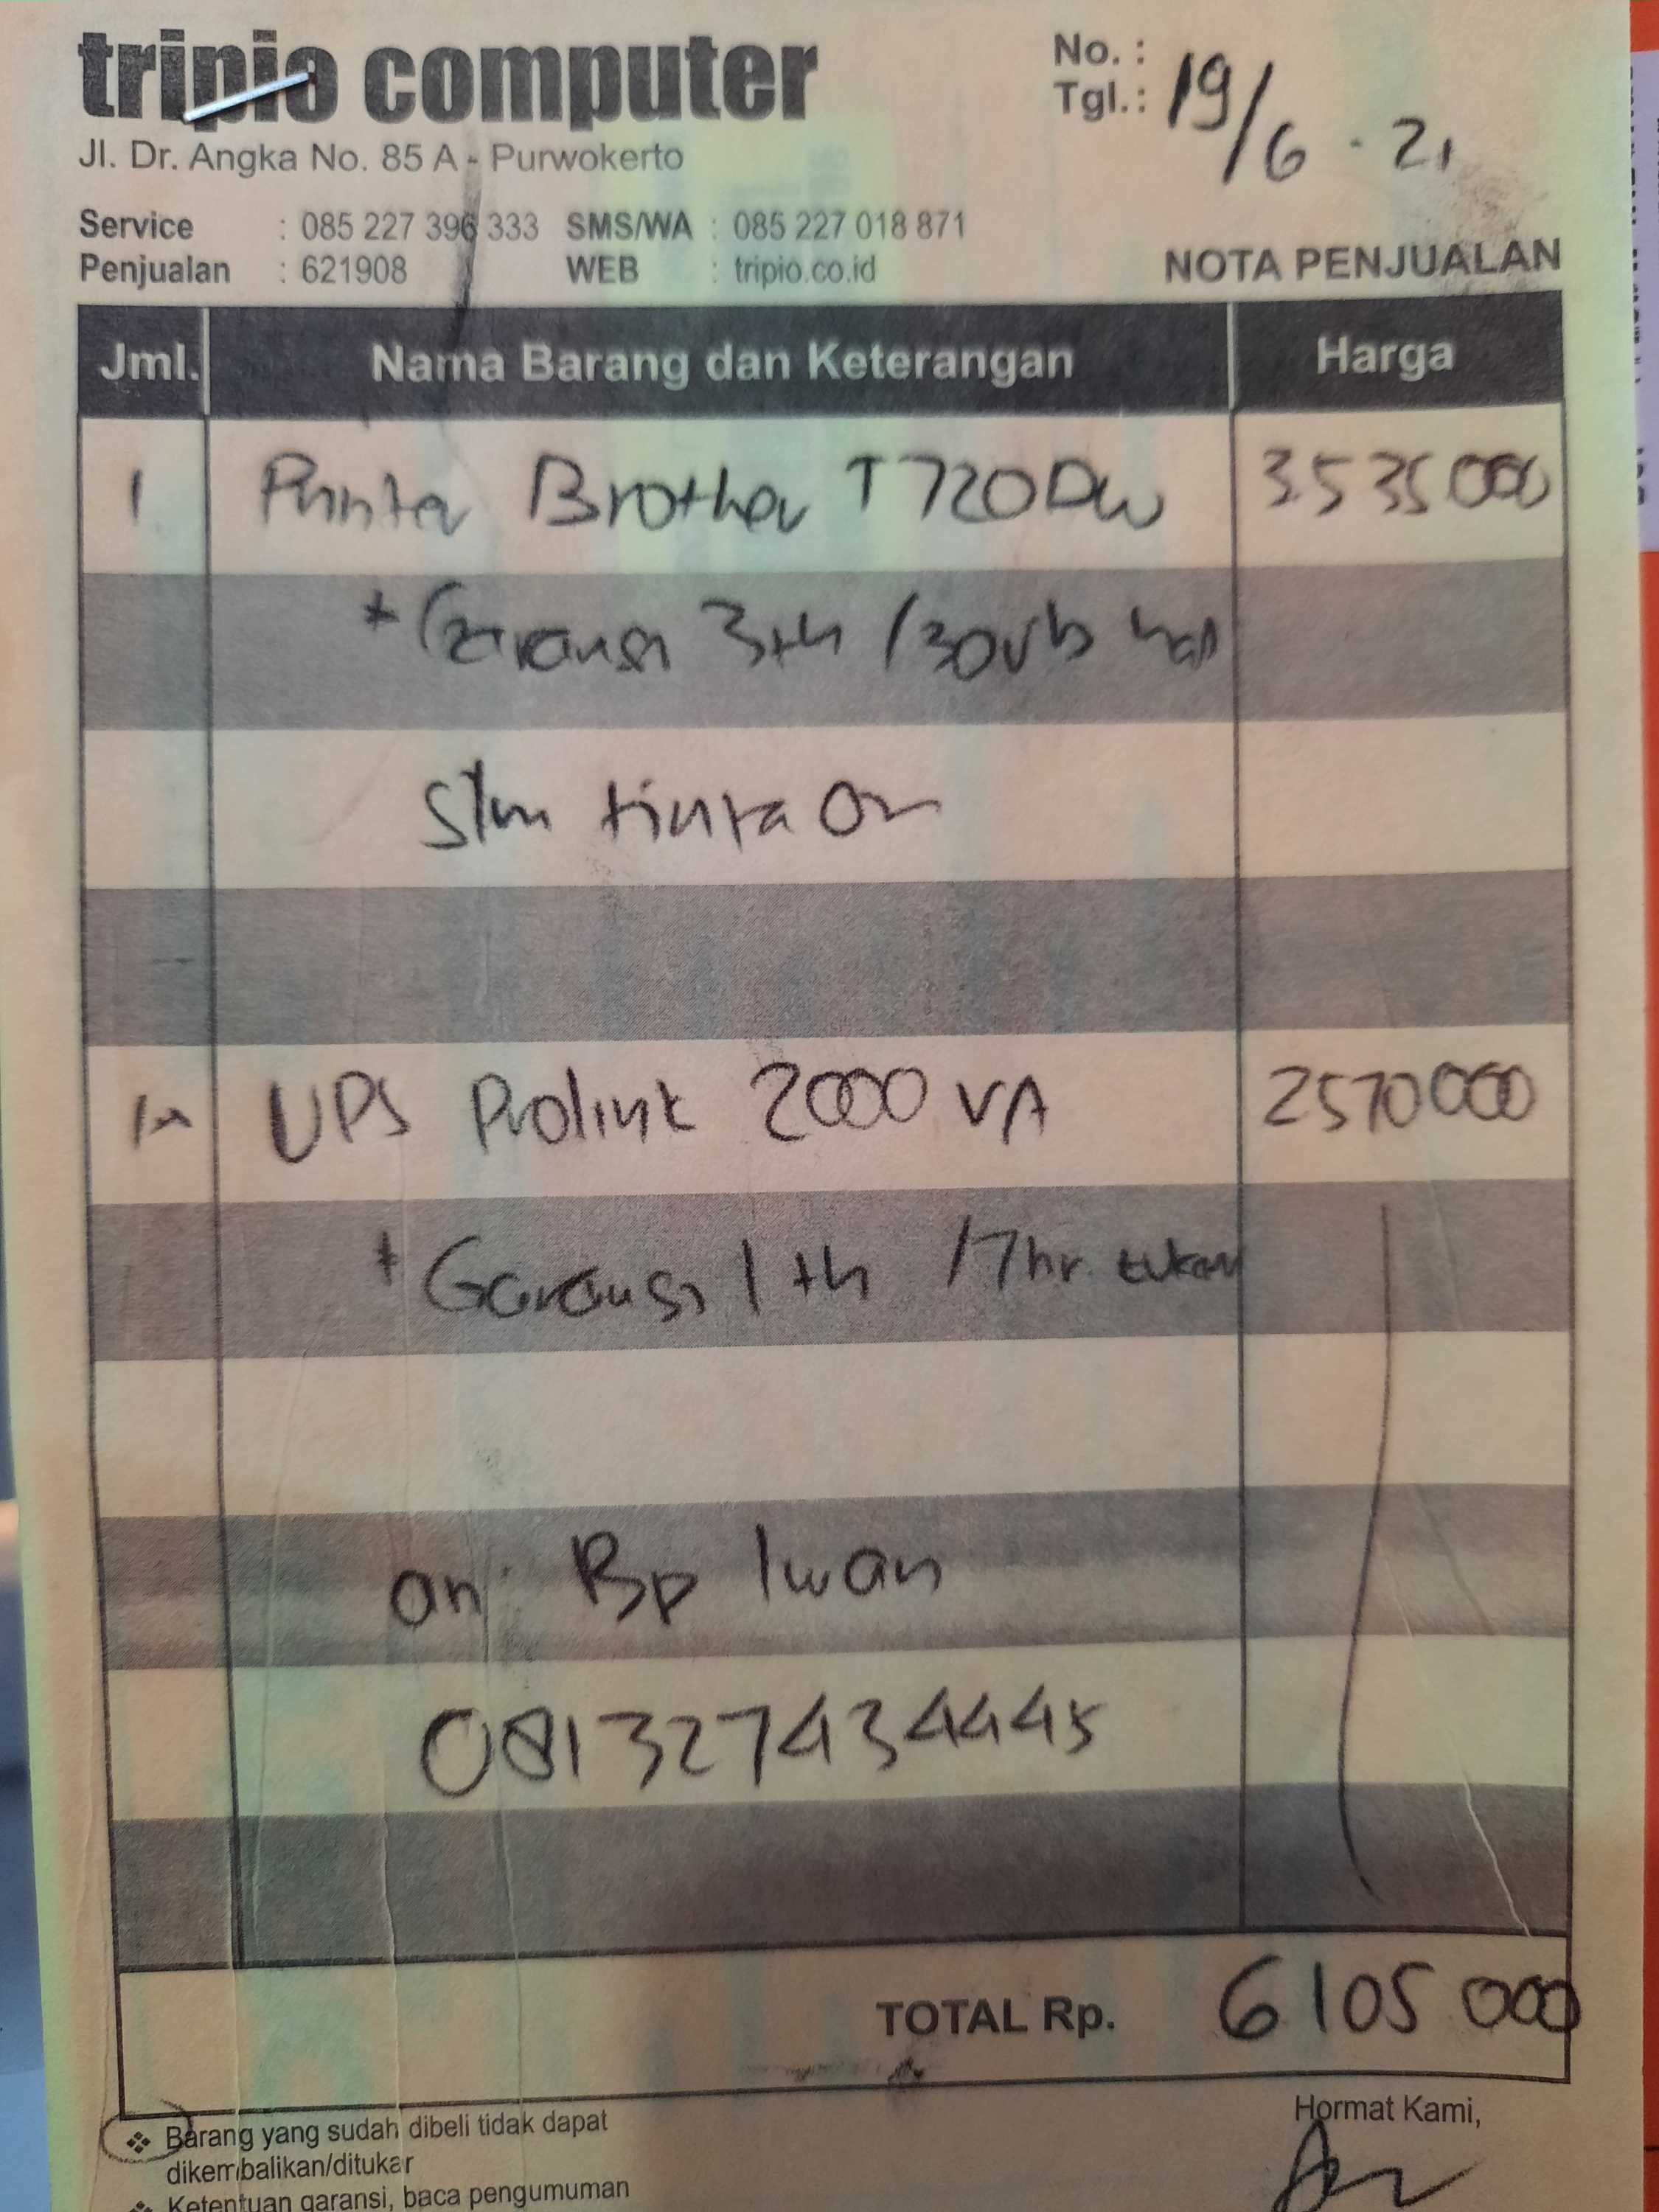 tripio computer
Jl. Dr. Angka No. 85 A - Purwokerto
No. :
Tgl.: 19/6 - 21
Service : 085 227 396 333 SMS/WA : 085 227 018 871
Penjualan : 621908 WEB : tripio.co.id
NOTA PENJUALAN
Jml. Nama Barang dan Keterangan Harga
1 Printer Brother T720DW 3.535000
* Garansi 3th /30rb hal
tinta
1 UPS Prolink 2000 VA 2570000
* Garansi 1 th / 7hr. tukar
an: Bp Iwan
081327434445
TOTAL Rp. 6105000
Hormat Kami,
❖ Barang yang sudah dibeli tidak dapat
dikembalikan/ditukar
❖ Ketentuan garansi, baca pengumuman